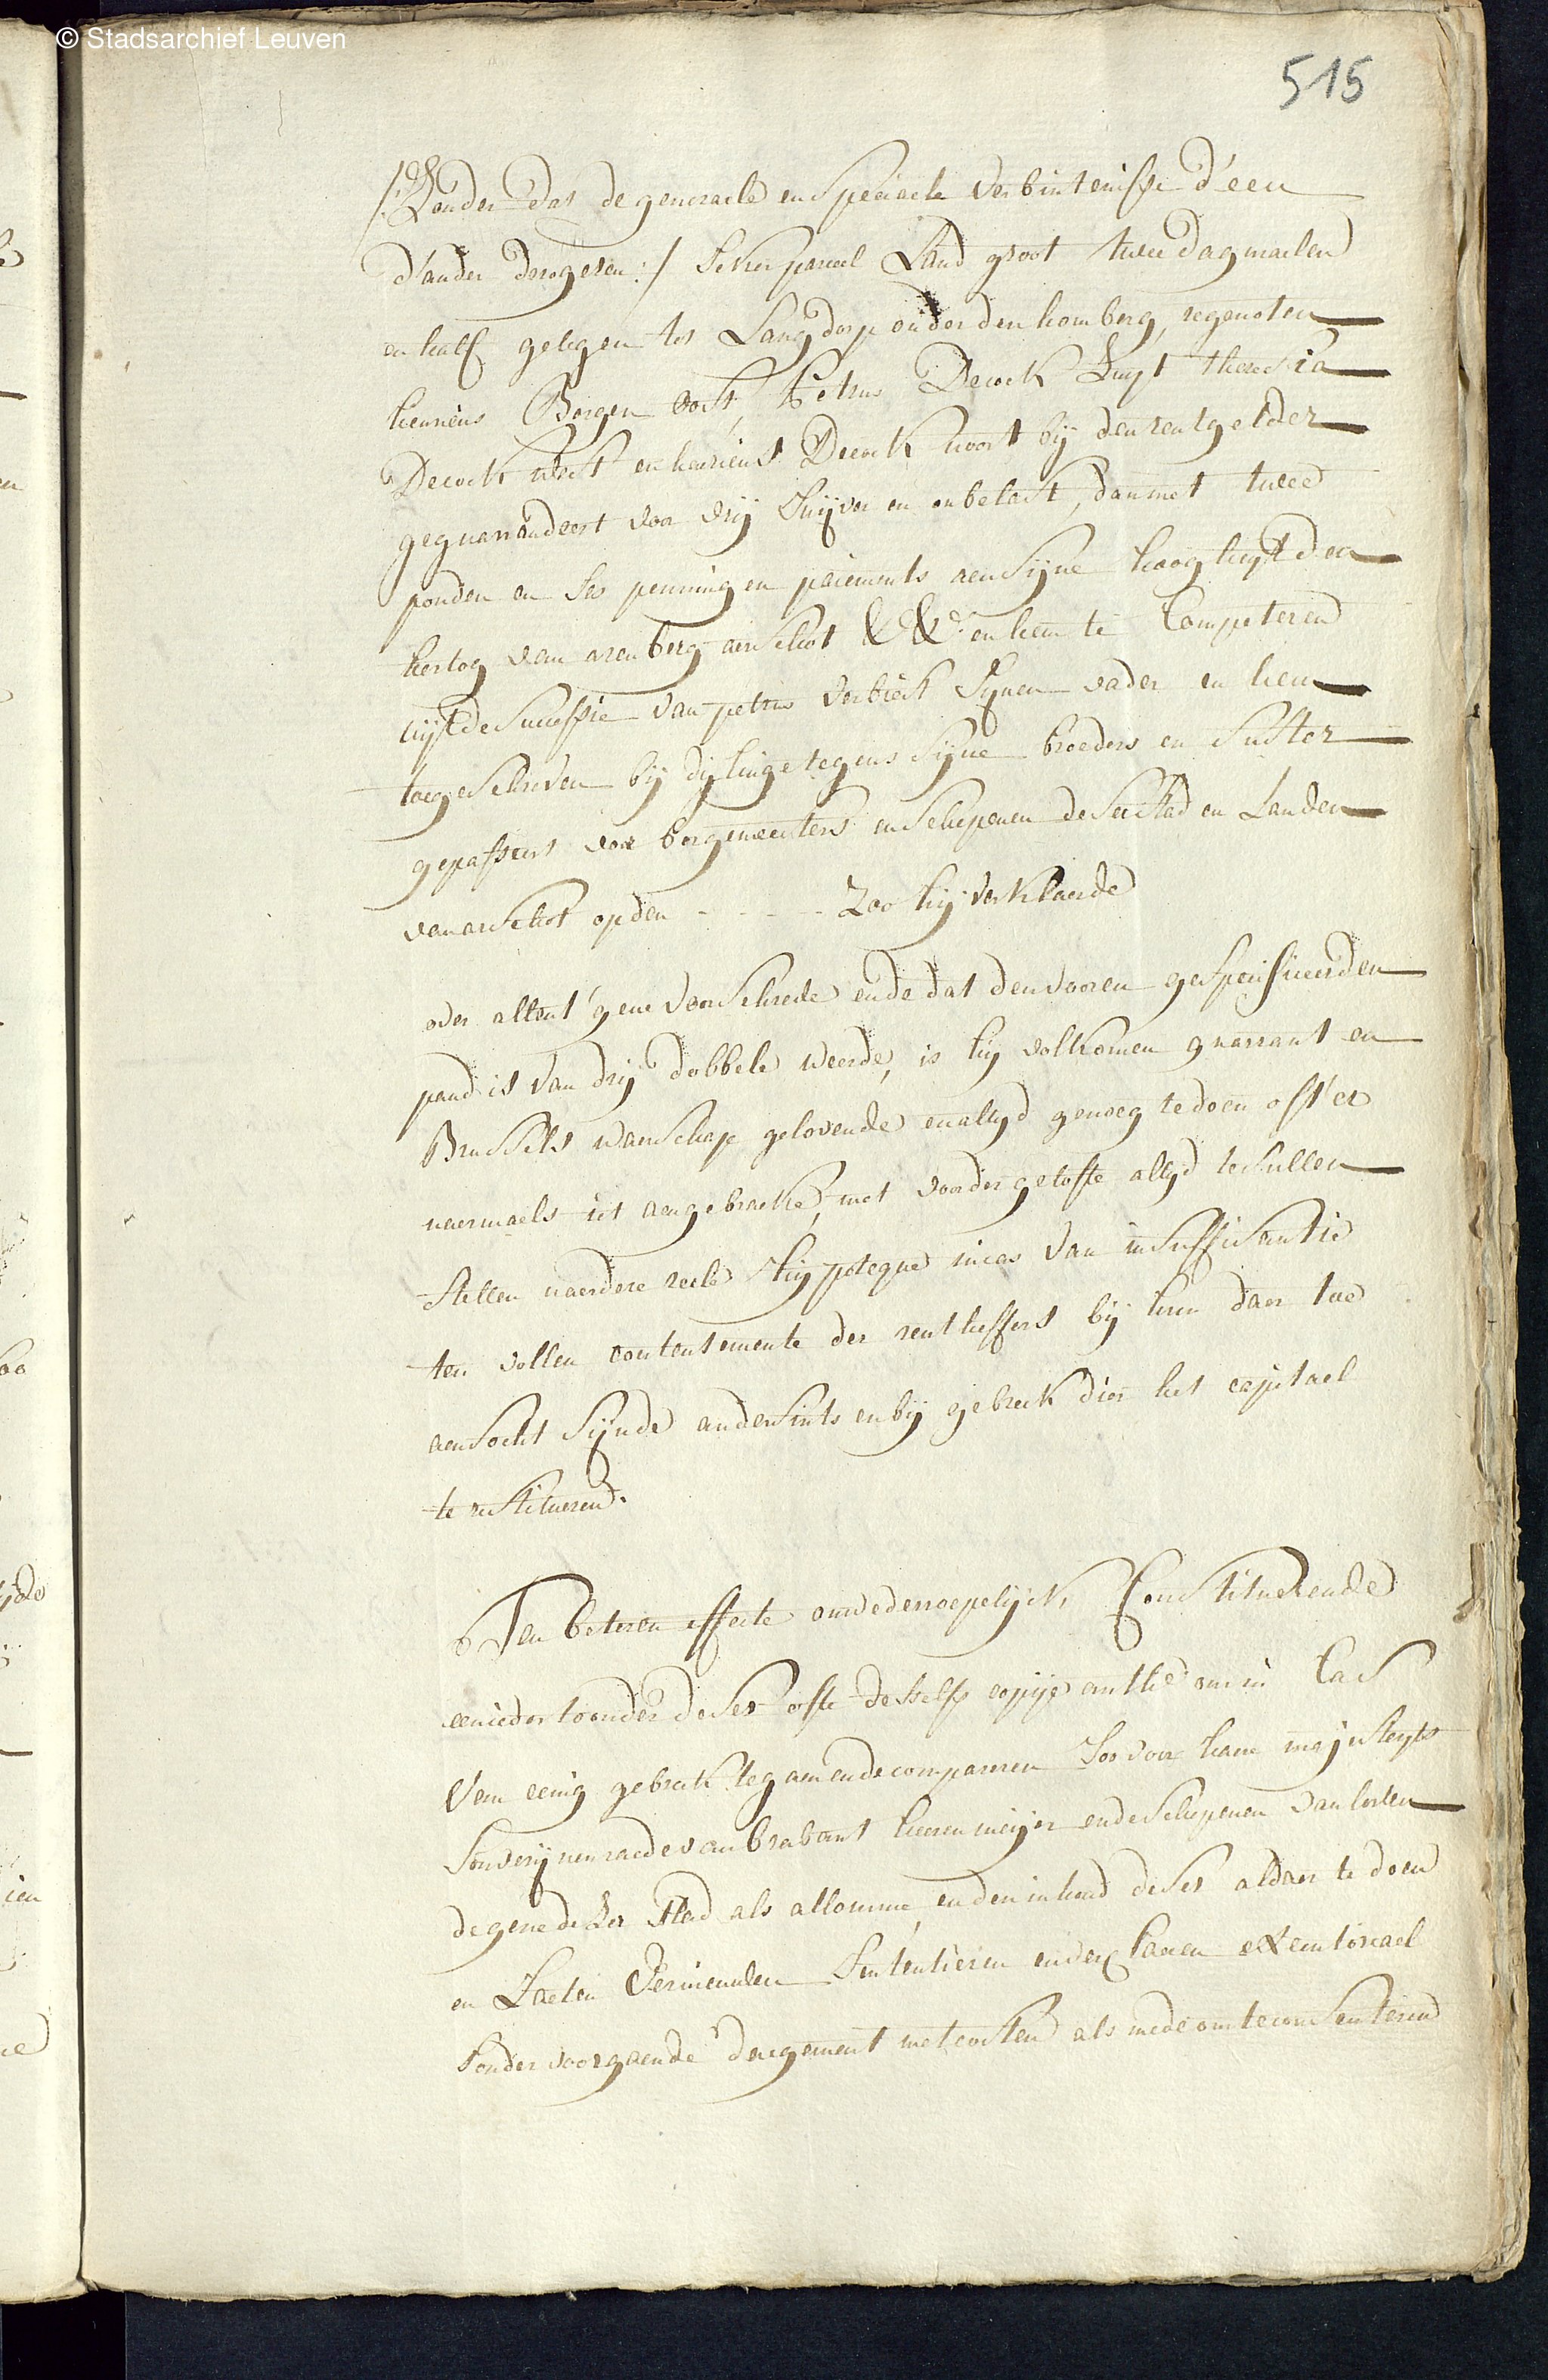 © Stadsarchief Leuven
515
/: Zonder dat de generaele en speciaele verbintenisse d'een
d'ander derogeren :/ seker parceel Land groot twee dagmaelen
en half gelegen tot Langdorp onder den homberg, regenoten
henricus Bergen oost, Petrus Decock Zuyt theresia
Decock west en henricus Decock noort bij den rentgelder
geguarrandeert voor vrij Suijver en onbelast, dan met twee
ponden en ses penningen paiements aen Sijne hoogheyt den
hertog van arenberg aerschot &&a. en hem te Competeren
uijt de Successie van petrus Verbiest Sijnen vader en hem
toegeschreven bij dijlinge tegens Sijne broeders en suster
gepasseert voor borgemeesters en Schepenen deser Stad en Landen
van aerschot op den - - - - - Zoo hij verklaerde
over all en t'gene voorschrede ende dat den vooren gespecificeerden
pand is van drij dobbele weerde, is hij volkomen guarrant en
Brussels waerschap gelovende en altyd genoeg te doen oft er
naermaels iet aen gebracke, met voorder gelofte altyd te sullen
Stellen naerdere reele Hijpoteque in cas van insuffisantie
ten vollen contentemente der rentheffers bij hun daer toe
aensocht sijnde andersints en bij gebreck dier het capitael
te restitueren.
Ten beteren effecte onwederroepelijck, Constituerende
een ieder toonder deser ofte desselfs copije authe. om in Cas
Van eenig gebreck tegaen ende compareren soo voor haere majesteyts
Souverijnen raede van brabant heeren meijer ende Schepenen van loven
degene deser Stad als allomme, en den inhoud deser aldaer te doen
en Laeten Vernieuwen Sententieren ende Claren executoriael
sonder voorgaende daegement met costen als mede om te consenteren